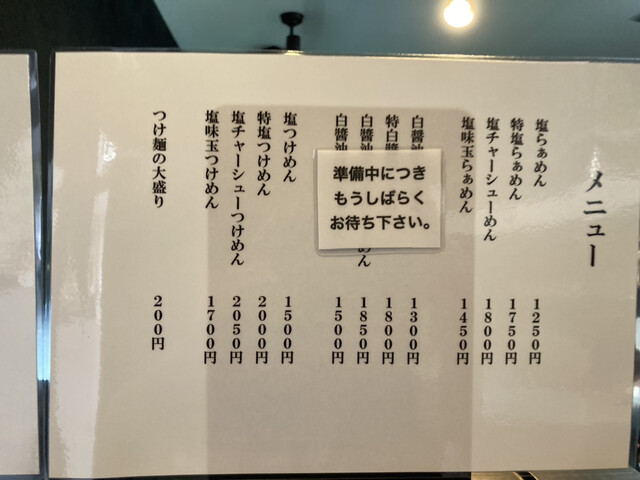 メニュー
塩らぁめん 1250円
特塩らぁめん 1750円
塩チャーシューめん 1800円
塩味玉らぁめん 1450円
白醬油 1300円
特白醬 1800円
白醬油 めん 1850円
白醬油 1500円
準備中につき
もうしばらく
お待ち下さい。
塩つけめん 1500円
特塩つけめん 2000円
塩チャーシューつけめん 2050円
塩味玉つけめん 1700円
つけ麺の大盛り 200円